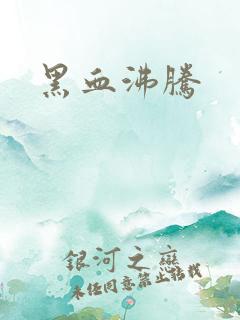 黑血沸騰
銀河之戀
未任同意禁止搭載